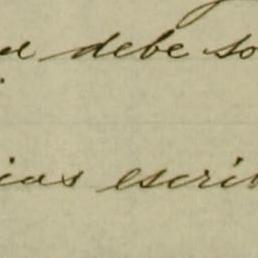 debe so
ias escrib